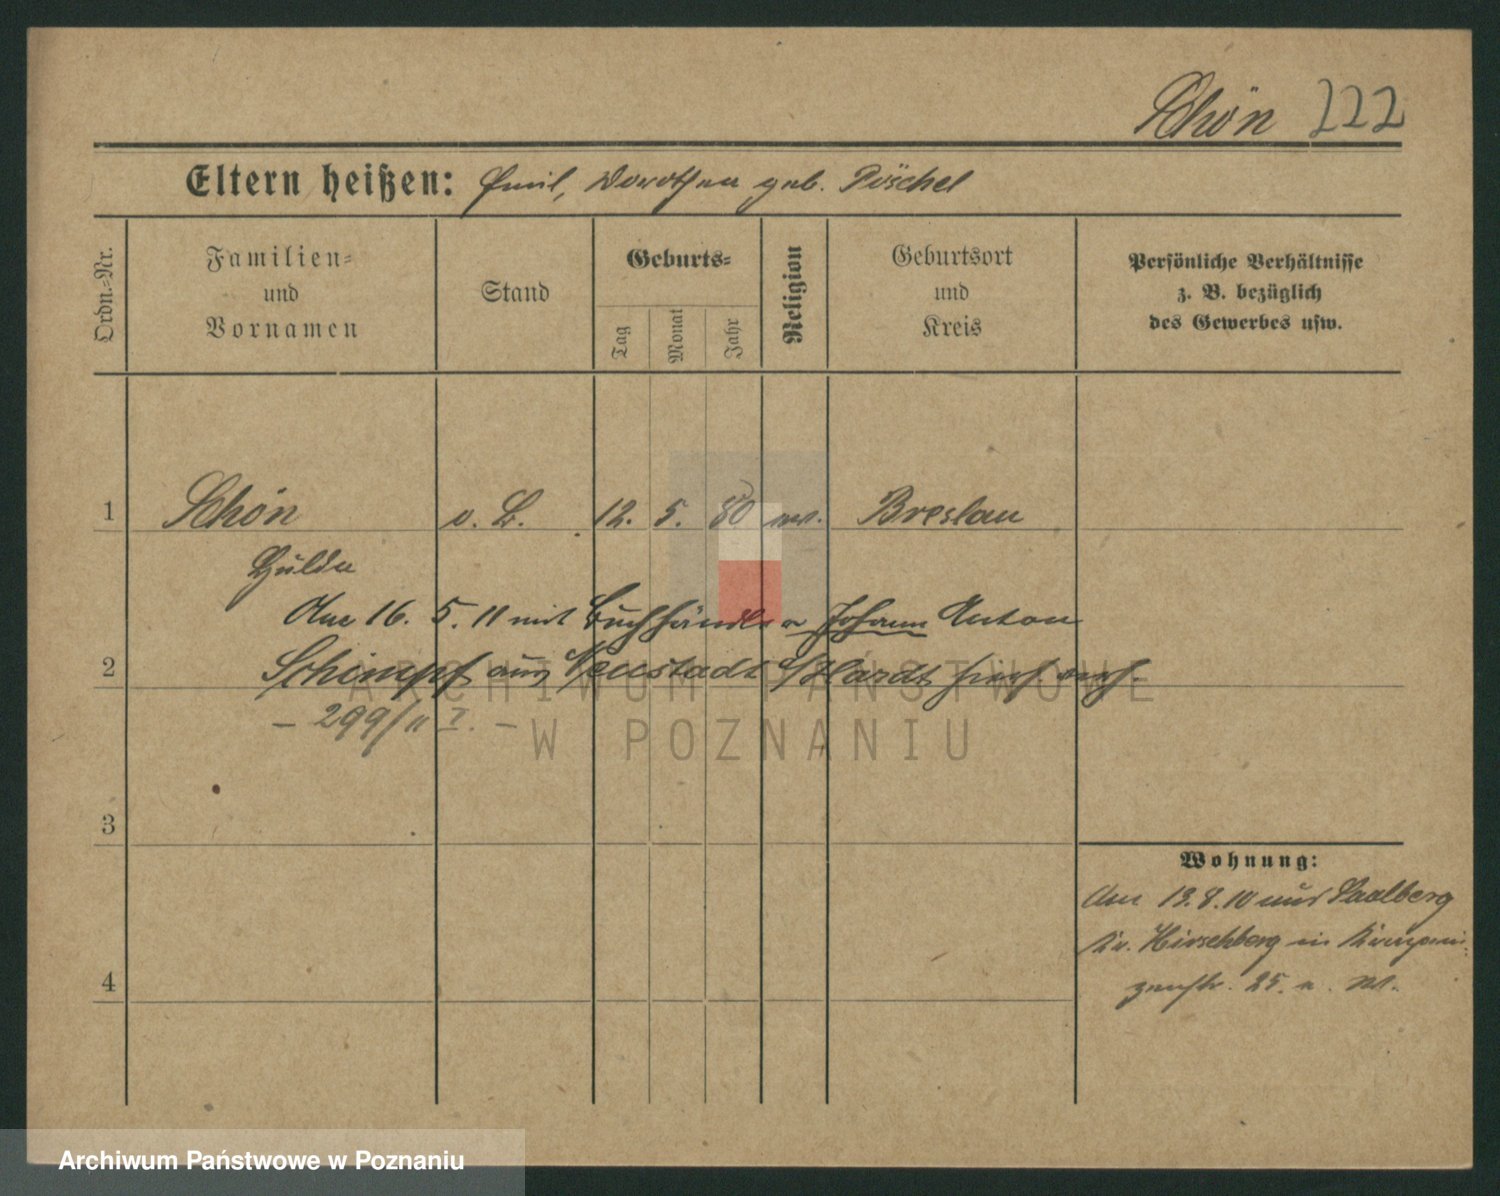 Schön 222
Eltern heißen: Emil, Dorothea geb. Pöschel
Ordn.=Nr.
Familien=
und
Vornamen
Stand
Geburts=
Tag
Monat
Jahr
Religion
Geburtsort
und
Kreis
Persönliche Verhältnisse
z. B. bezüglich
des Gewerbes usw.
1 Schön o. B. 12. 5. 80 ev. Breslau
Hulda
Am 16. 5. 11 mit Buchhändler Johann Anton
2 Schimpf aus Neustadt a/Hardt hier verh.
– 299/11 I. –
3
Wohnung:
Am 13.8.10 aus Saalberg
Kr. Hirschberg in
4
25.
ARCHIWUM PAŃSTWOWE
W POZNANIU
Archiwum Państwowe w Poznaniu